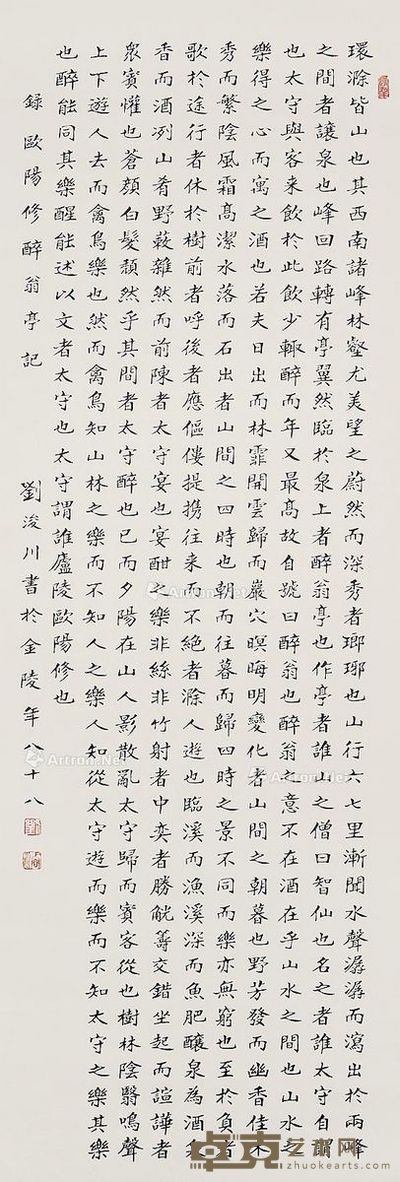 環滁皆山也其西南諸峰林壑尤美望之蔚然而深秀者瑯琊也山行六七里漸聞水聲潺潺而瀉出於兩峰
之間者讓泉也峰回路轉有亭翼然臨於泉上者醉翁亭也作亭者誰山之僧曰智仙也名之者誰太守自謂
也太守與客來飲於此飲少輒醉而年又最高故自號曰醉翁也醉翁之意不在酒在乎山水之間也山水之
樂得之心而寓之酒也若夫日出而林霏開雲歸而巖穴暝晦明變化者山間之朝暮也野芳發而幽香佳木
秀而繁陰風霜高潔水落而石出者山間之四時也朝而往暮而歸四時之景不同而樂亦無窮也至於負者
歌於途行者休於樹前者呼後者應傴僂提攜往來而不絕者滁人遊也臨溪而漁溪深而魚肥釀泉為酒泉
香而酒冽山肴野蔌雜然而前陳者太守宴也宴酣之樂非絲非竹射者中奕者勝觥籌交錯坐起而諠譁者
眾賓懽也蒼顏白髮頹然乎其間者太守醉也已而夕陽在山人影散亂太守歸而賓客從也樹林陰翳鳴聲
上下遊人去而禽鳥樂也然而禽鳥知山林之樂而不知人之樂人知從太守遊而樂而不知太守之樂其樂
也醉能同其樂醒能述以文者太守也太守謂誰廬陵歐陽修也
錄歐陽修醉翁亭記 劉浚川書於金陵年八十八
Artron.Net
Artron.Net
卓克艺术网
www.zhuokearts.com